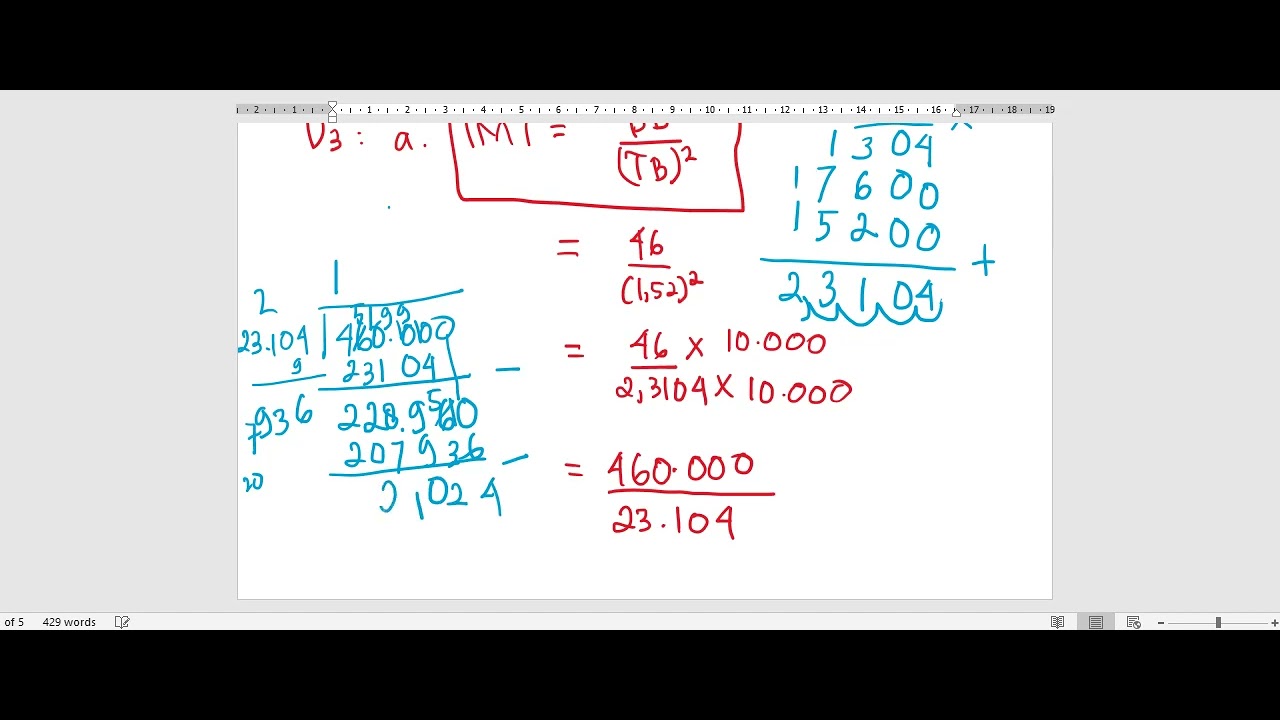 2 1 1 2 3 4 5 6 7 8 9 10 11 12 13 14 15 16 17 18 19
V3 : a. IMT =
(TB)²
= 46
(1,52)²
= 46 x 10.000
2,3104 x 10.000
= 460.000
23.104
x
1 304
17600
15200
+
2,3104
1
2
23.104 460.000
5199
9
23104 -
936
228.9560
207936 -
20
1,024
of 5 429 words